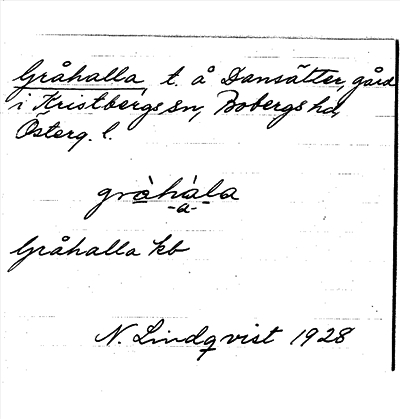 Gråhalla, t. å Dansätter, gård
i Kristbergs sn, Bobergs hd,
Österg. l.
gràhàla
-a-
Gråhalla kb
N. Lindqvist 1928